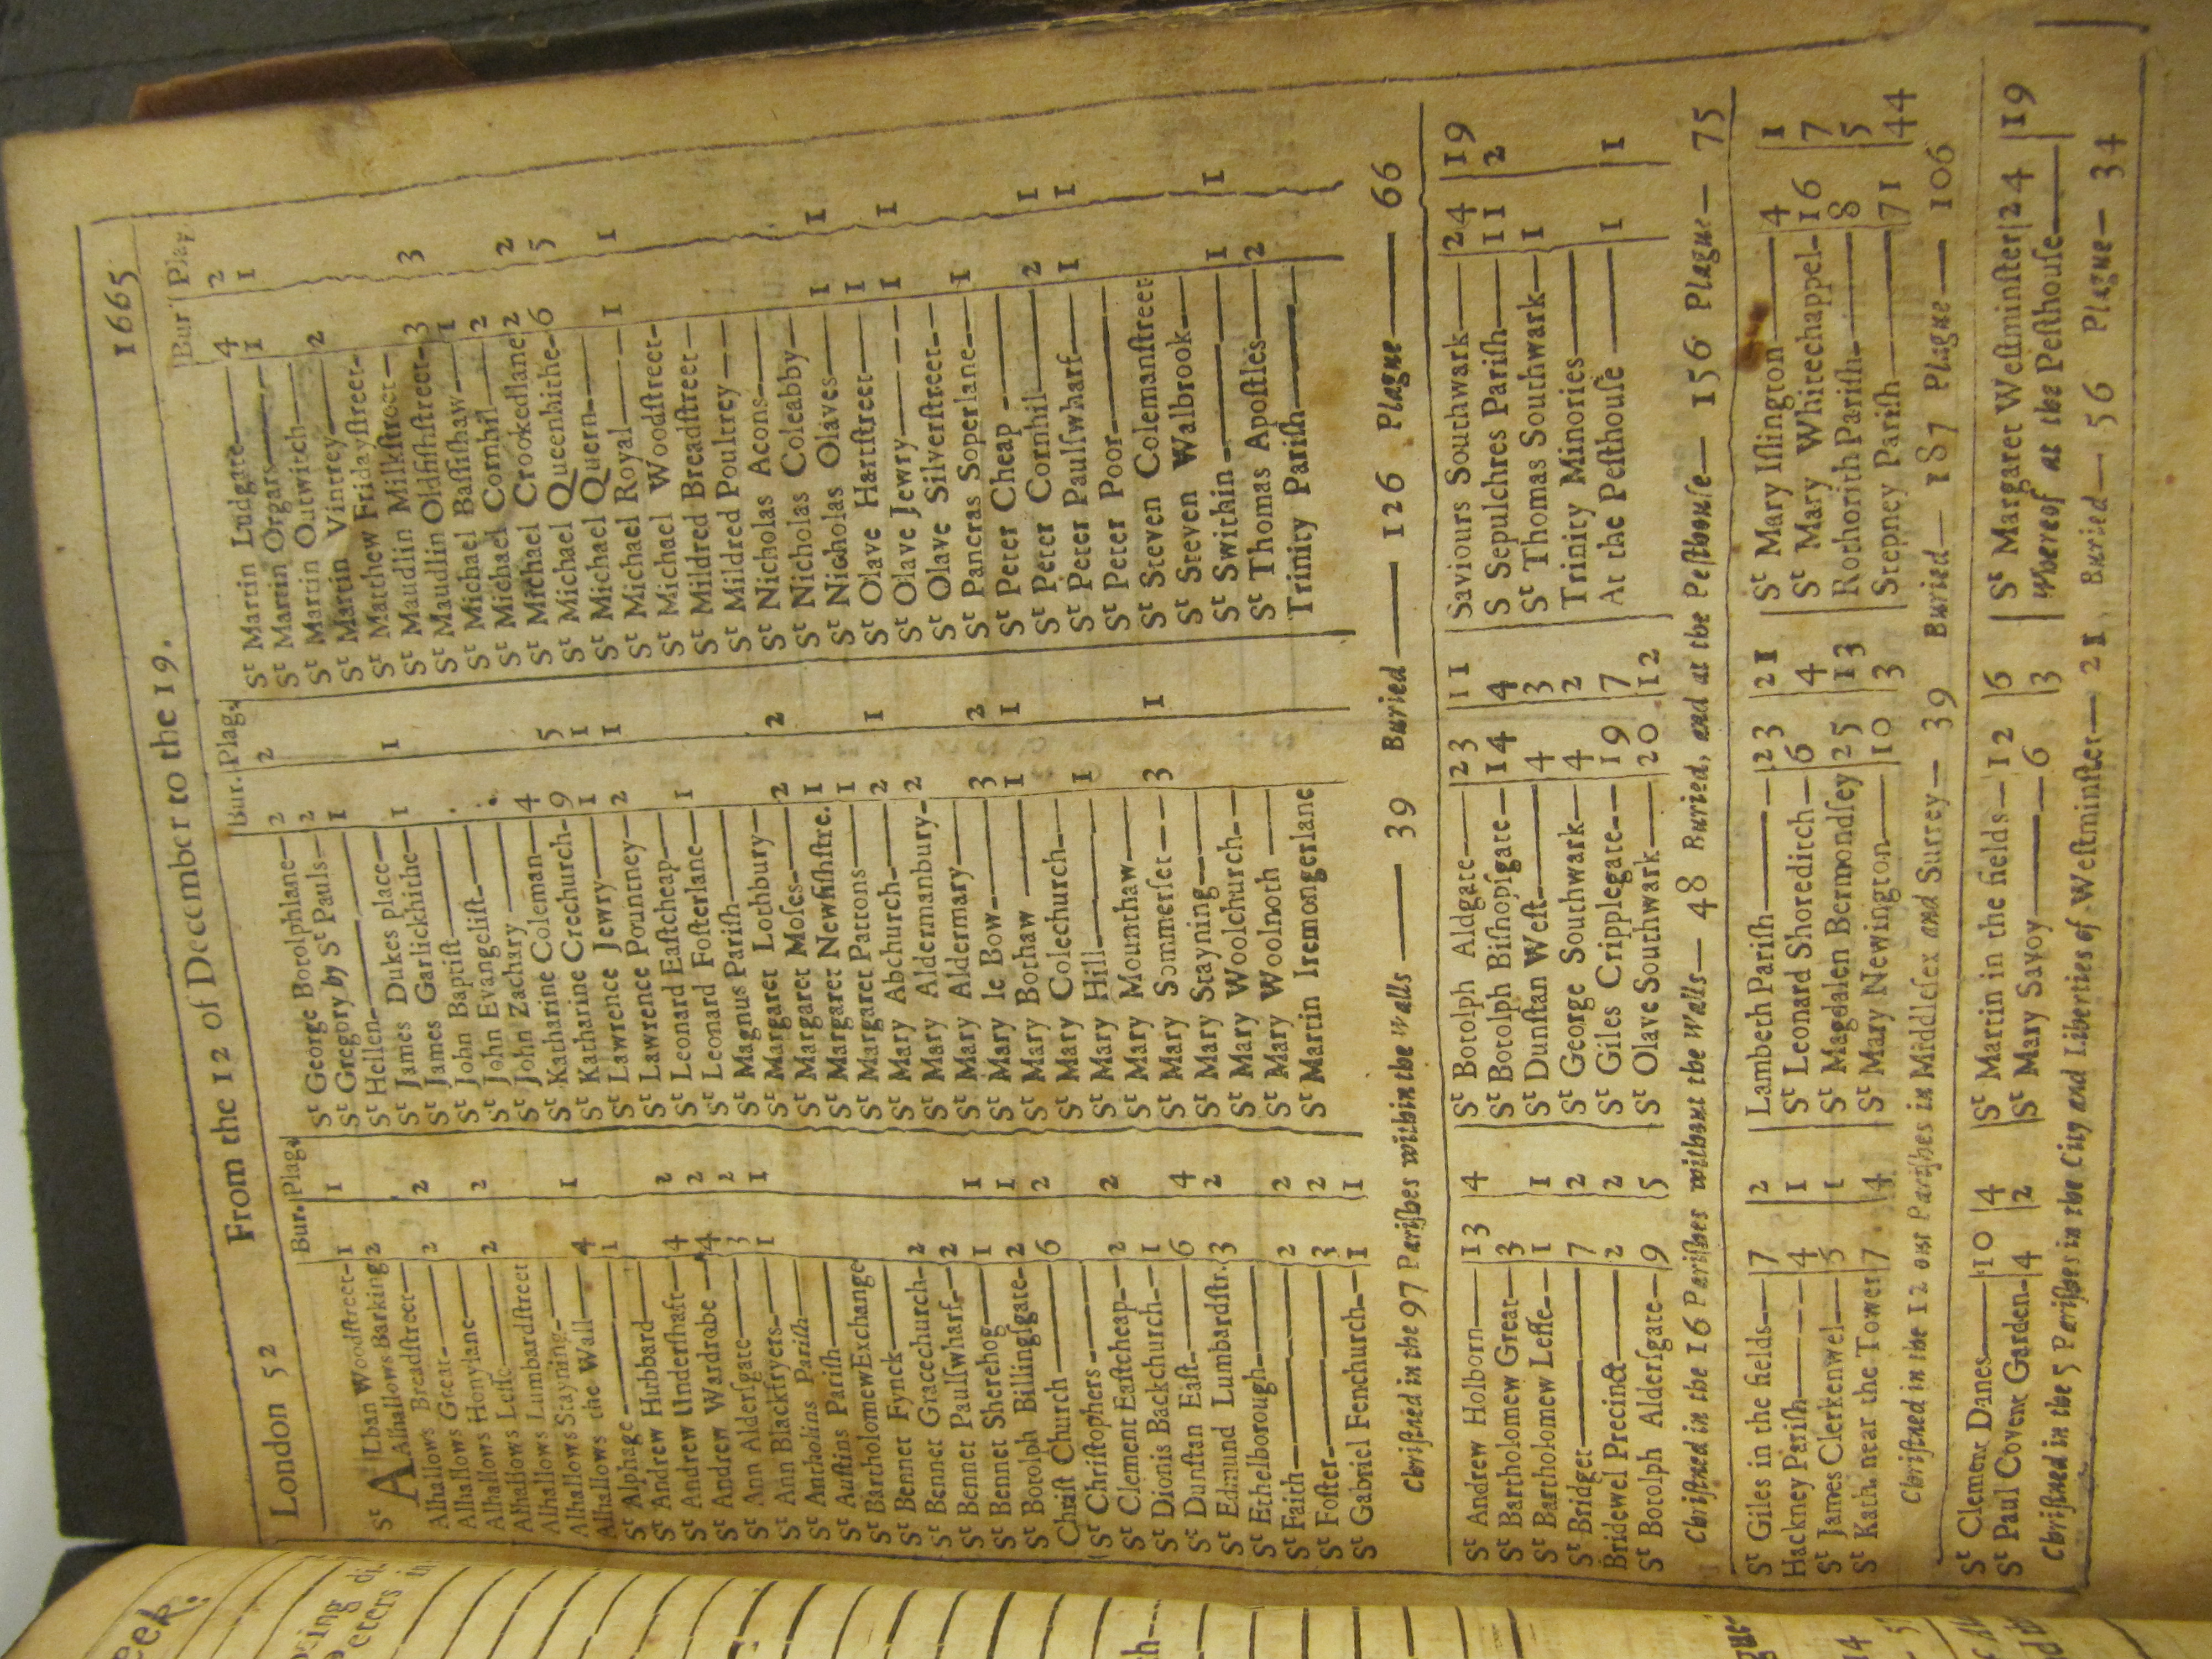 London 52 From the 12 of December to the 19. 1665
Bur. Plag.
St ALban Woodſtreet 1 1
Alhallows Barking 2
Alhallows Breadſtreet
Alhallows Great 2 2
Alhallows Honylane
Alhallows Leſſe 2 2
Alhallows Lumbardſtreet
Alhallows Stayning
Alhallows the Wall 4 1
St Alphage 1
St Andrew Hubbard
St Andrew Underſhaft 4 2
St Andrew Wardrobe 4 2
St Ann Alderſgate 3 2
St Ann Blackfryers 1 1
St Antholins Pariſh
St Auſtins Pariſh
St Bartholomew Exchange
St Bennet Fynck
St Bennet Gracechurch 2
St Bennet Paulſwharf 2 1
St Bennet Sherehog 1 1
St Botolph Billingſgate 2 2
Chriſt Church 6
St Chriſtophers 2
St Clement Eaſtcheap 2
St Dionis Backchurch 1
St Dunſtan Eaſt 6 4
St Edmund Lumbardſtr. 3 2
St Ethelborough
St Faith 2 2
St Foſter 3 2
St Gabriel Fenchurch 1 1
Bur. Plag.
St George Botolphlane 2 2
St Gregory by St Pauls 2
St Hellen 1
St James Dukes place
St James Garlickhithe 1 1
St John Baptiſt
St John Evangeliſt
St John Zachary
St Katharine Coleman 4
St Katharine Crechurch 9 5
St Lawrence Jewry 1 1
St Lawrence Pountney 2 1
St Leonard Eaſtcheap
St Leonard Foſterlane 1
St Magnus Pariſh
St Margaret Lothbury 2 2
St Margaret Moſes 1
St Margaret Newfiſhſtre. 1
St Margaret Pattons 2 1
St Mary Abchurch 2
St Mary Aldermanbury
St Mary Aldermary
St Mary le Bow 3 2
St Mary Bothaw 1 1
St Mary Colechurch
St Mary Hill 1
St Mary Mounthaw
St Mary Sommerſet 3 1
St Mary Stayning
St Mary Woolchurch
St Mary Woolnoth
St Martin Iremongerlane
Bur Plag.
St Martin Ludgate 4 2
St Martin Orgars 1 1
St Martin Outwitch
St Martin Vintrey 2
St Matthew Fridayſtreet
St Maudlin Milkſtreet
St Maudlin Oldfiſhſtreet 3 3
St Michael Baſſiſhaw 1
St Michael Cornhil 2
St Michael Crookedlane 2 2
St Michael Queenhithe 6 5
St Michael Quern
St Michael Royal 1 1
St Michael Woodſtreet
St Mildred Breadſtreet
St Mildred Poultrey
St Nicholas Acons
St Nicholas Coleabby 1 1
St Nicholas Olaves 1
St Olave Hartſtreet 1 1
St Olave Jewry
St Olave Silverſtreet 1
St Pancras Soperlane
St Peter Cheap 2 1
St Peter Cornhil 1 1
St Peter Paulſwharf
St Peter Poor
St Steven Colemanſtreet
St Steven Walbrook 1 1
St Swithin 2
St Thomas Apoſtles
Trinity Pariſh
Chriſtned in the 97 Pariſhes within the Walls 39 Buried 126 Plague 66
St Andrew Holborn 13 4
St Bartholomew Great 3
St Bartholomew Leſſe 1 1
St Bridget 7 2
Bridewel Precinct 2 2
St Botolph Alderſgate 9 5
St Botolph Aldgate 23 11
St Botolph Biſhopſgate 14 4
St Dunſtan Weſt 4 3
St George Southwark 4 2
St Giles Cripplegate 19 7
St Olave Southwark 20 12
Saviours Southwark 24 19
S Sepulchres Pariſh 11 2
St Thomas Southwark 1
Trinity Minories
At the Peſthouſe 1 1
Chriſtned in the 16 Pariſhes without the Walls 48 Buried, and at the Peſthouſe 156 Plague 75
St Giles in the fields 7 2
Hackney Pariſh 4 1
St James Clerkenwel 5 1
St Kath. near the Tower 7 4
Lambeth Pariſh 23 21
St Leonard Shoreditch 6 4
St Magdalen Bermondſey 25 13
St Mary Newington 10 3
St Mary Iſlington 4 1
St Mary Whitechappel 16 7
Rothorith Pariſh 8 5
Stepney Pariſh 71 44
Chriſtned in the 12 out Pariſhes in Middleſex and Surrey 39 Buried 187 Plague 106
St Clement Danes 10 4
St Paul Covent Garden 4 2
St Martin in the fields 12 6
St Mary Savoy 6 3
St Margaret Weſtminſter 24 19
Whereof at the Peſthouſe
Chriſtned in the 5 Pariſhes in the City and Liberties of Weſtminſter 21 Buried 56 Plague 34
eek.
Peters in